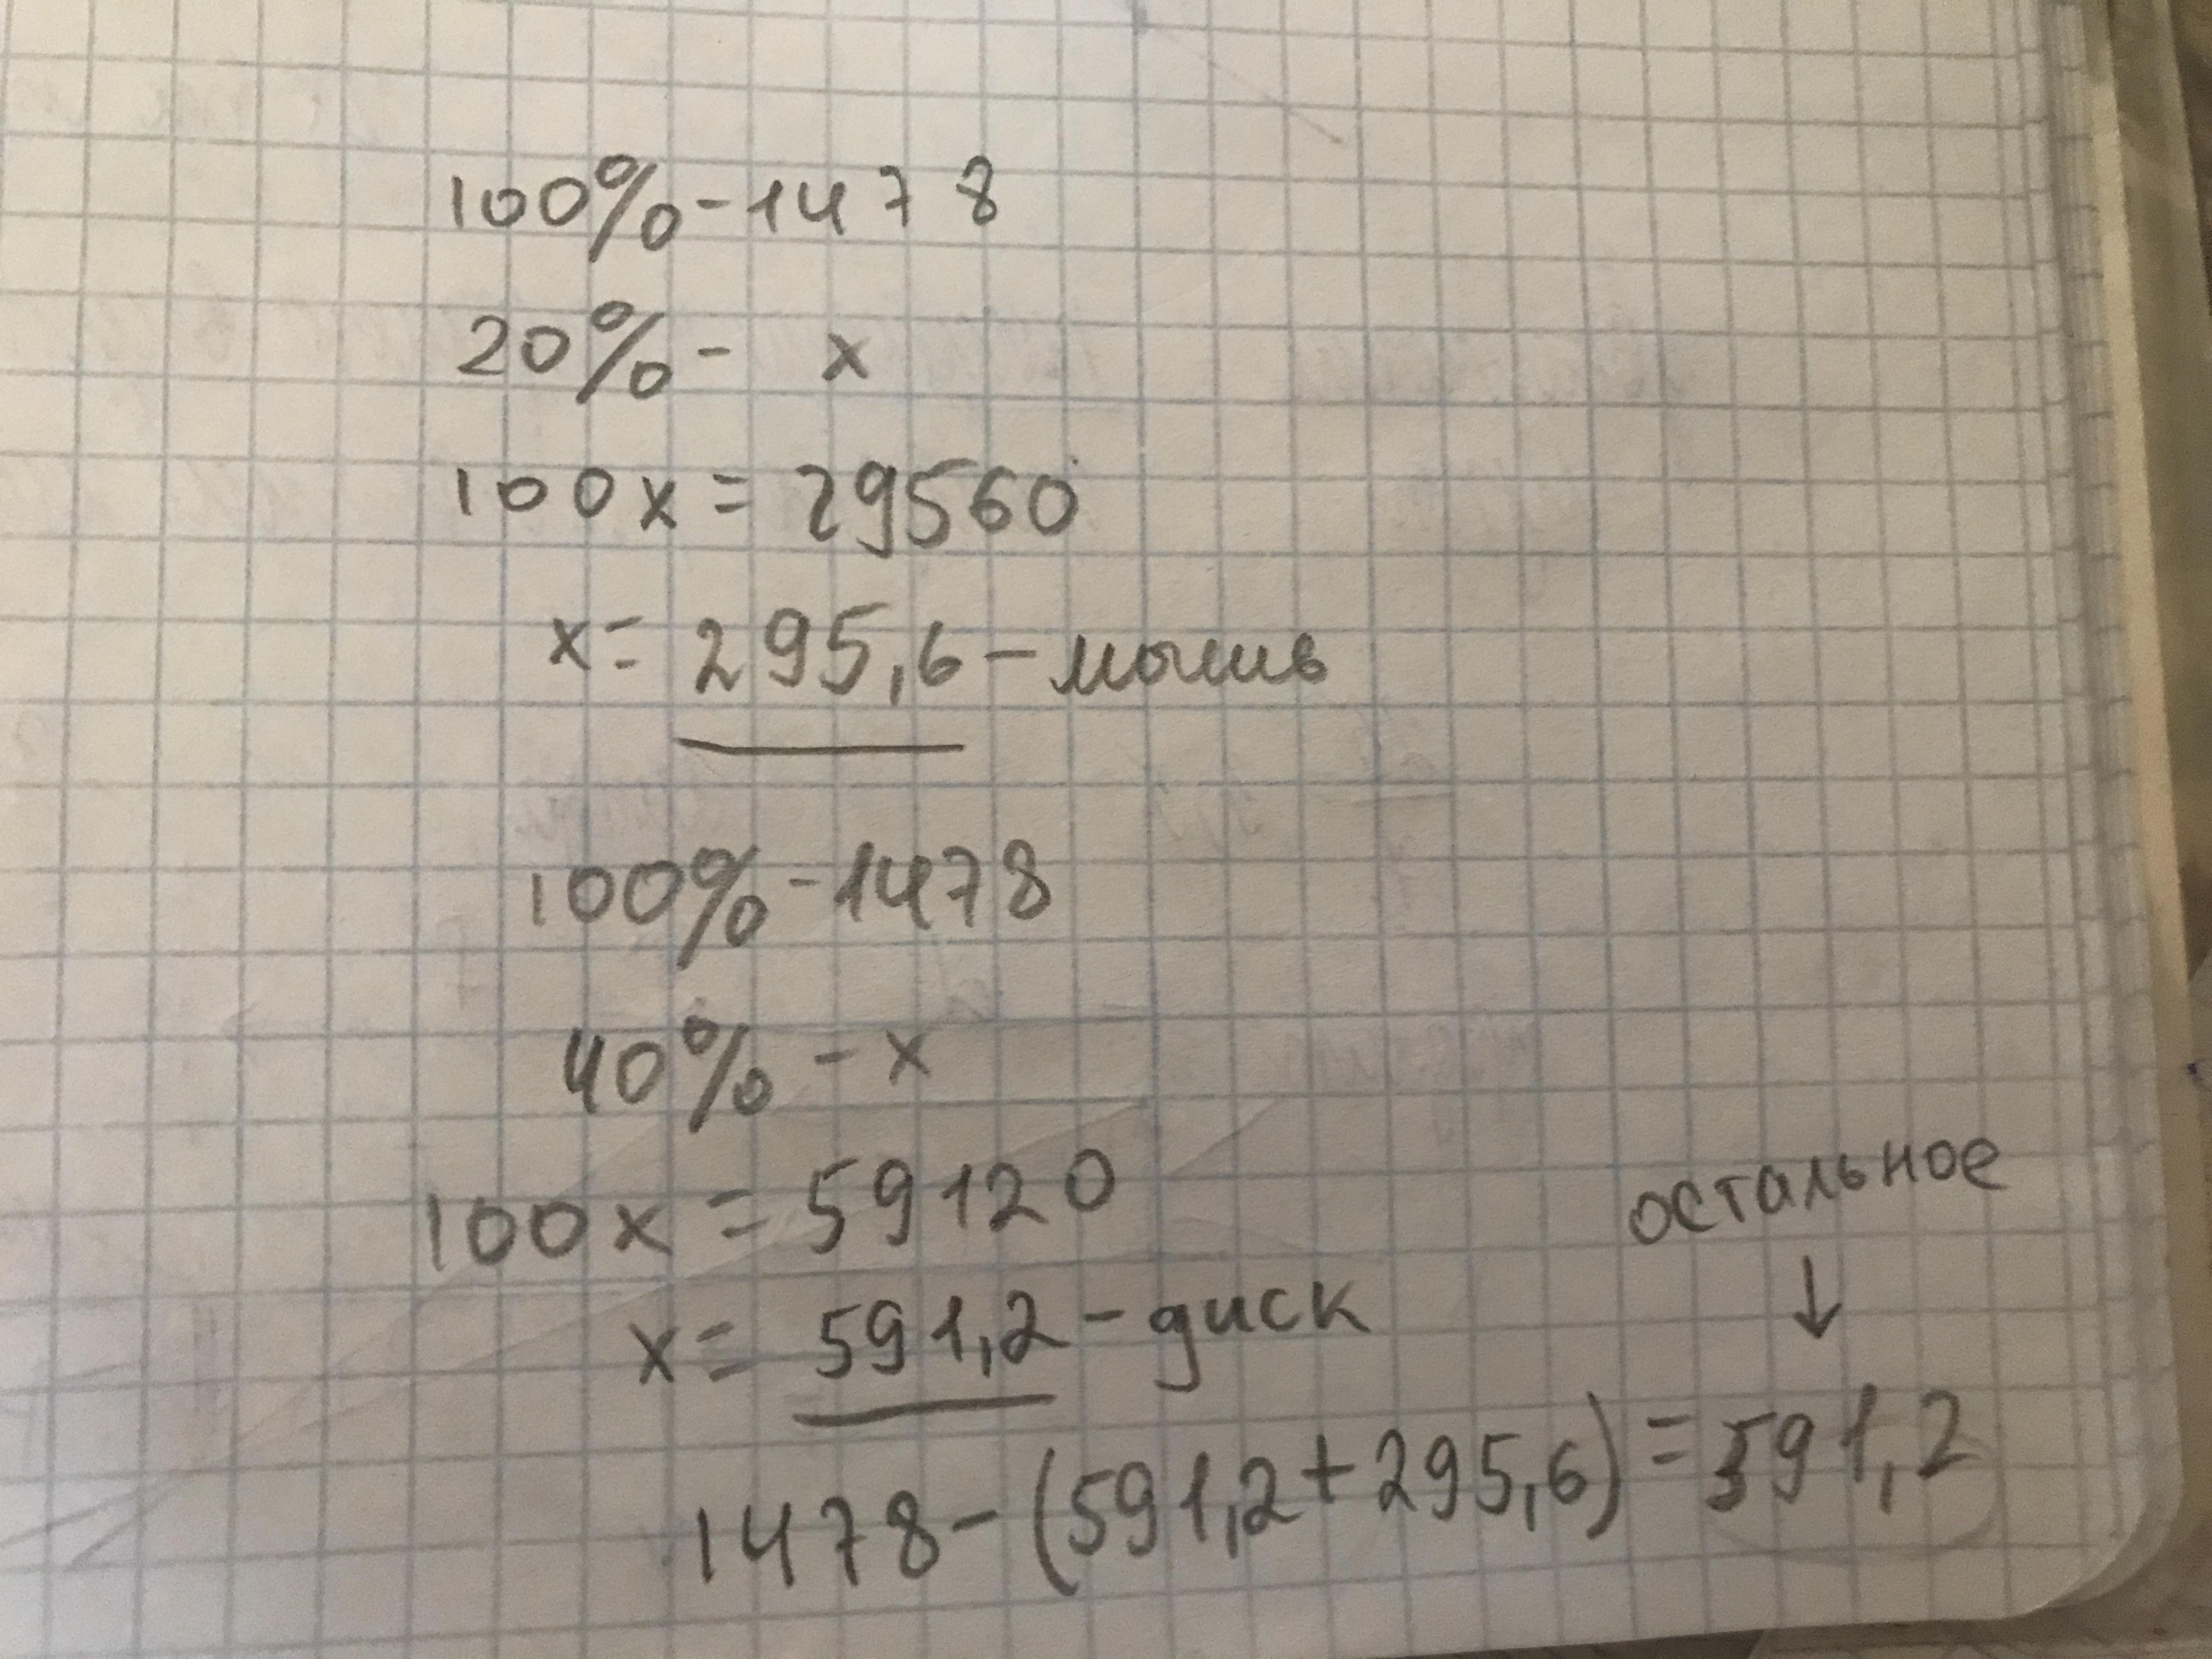 100%-1478
20%- x
100x=29560
x=295,6-мышь
100%-1478
40%-x
100x=59120
x=591,2-диск
остальное
↓
1478-(591,2+295,6)=591,2